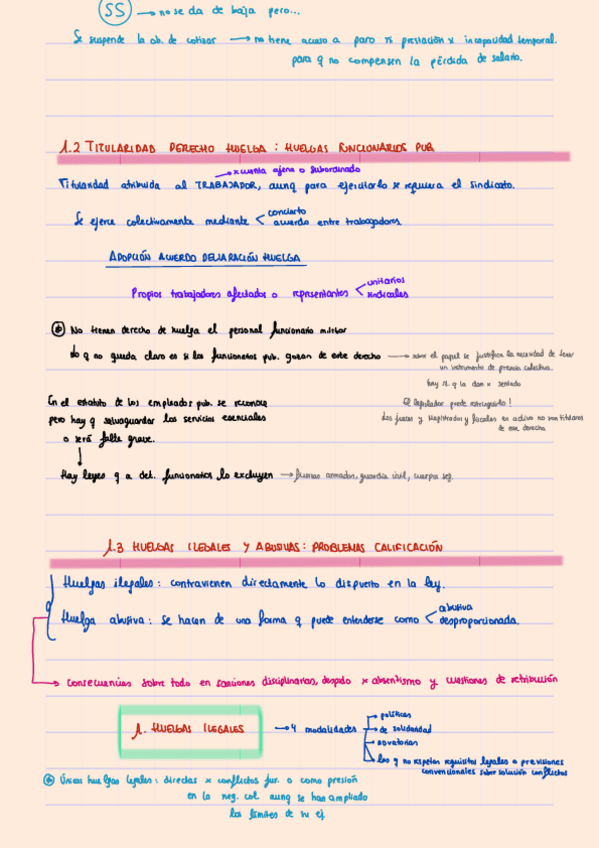 SS → no se da de baja pero...
Se suspende la ob. de cotizar → no tiene acceso a paro ni prestación x incapacidad temporal.
para q no compensen la pérdida de salario.
1.2 TITULARIDAD DERECHO HUELGA: HUELGAS FUNCIONARIOS PUB.
→ x cuenta ajena o subordinado
Titularidad atribuida al TRABAJADOR, aunq para ejercitarlo se requiera el sindicato.
Se ejerce colectivamente mediante < concierto
acuerdo entre trabajadores
ADOPCIÓN ACUERDO DECLARACIÓN HUELGA
Propios trabajadores afectados o representantes < unitarios
sindicales
No tienen derecho de huelga el personal funcionario militar
Lo q no queda claro es si los funcionarios pub. gozan de este derecho → sobre el papel se justifica la necesidad de tener
un instrumento de presión colectiva.
hay q la dan x sentado
En el estatuto de los empleados pub. se reconoce
El legislador puede restringirlo!
pero hay q salvaguardar los servicios esenciales
Los jueces y Magistrados y fiscales en activo no son titulares
de este derecho
o será falta grave.
Hay leyes q a det. funcionarios lo excluyen → fuerzas armadas, guardia civil, cuerpos seg.
1.3 HUELGAS ILEGALES Y ABUSIVAS: PROBLEMAS CALIFICACIÓN
Huelgas ilegales: contravienen directamente lo dispuesto en la ley.
Huelga abusiva: se hacen de una forma q puede entenderse como < abusiva
desproporcionada.
→ consecuencias sobre todo en sanciones disciplinarias, despido x absentismo y cuestiones de retribución
1. HUELGAS ILEGALES → 4 modalidades
→ políticas
→ de solidaridad
→ novatorias
→ las q no respetan requisitos legales o previsiones
convencionales sobre solución conflictos
Únicas huelgas legales: directas x conflictos jur. o como presión
en la neg. col. aunq se han ampliado
los límites de su ej.